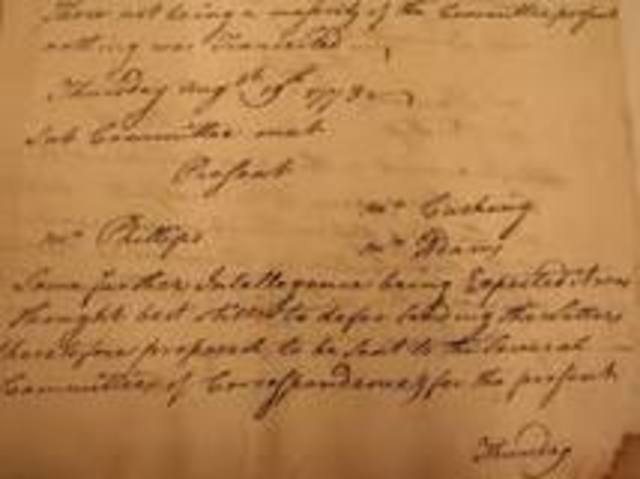 There not being a majority of the Committee present
nothing was transacted
Thursday Augt. 19th 1773
Sub Committee met
Present
Mr Cushing
Mr Phillips
Mr Adams
Some further Intelligence being Expected it was
thought best still to defer sending the letters
heretofore proposed to be sent to the several
Committees of Correspondence for the present
Thursday